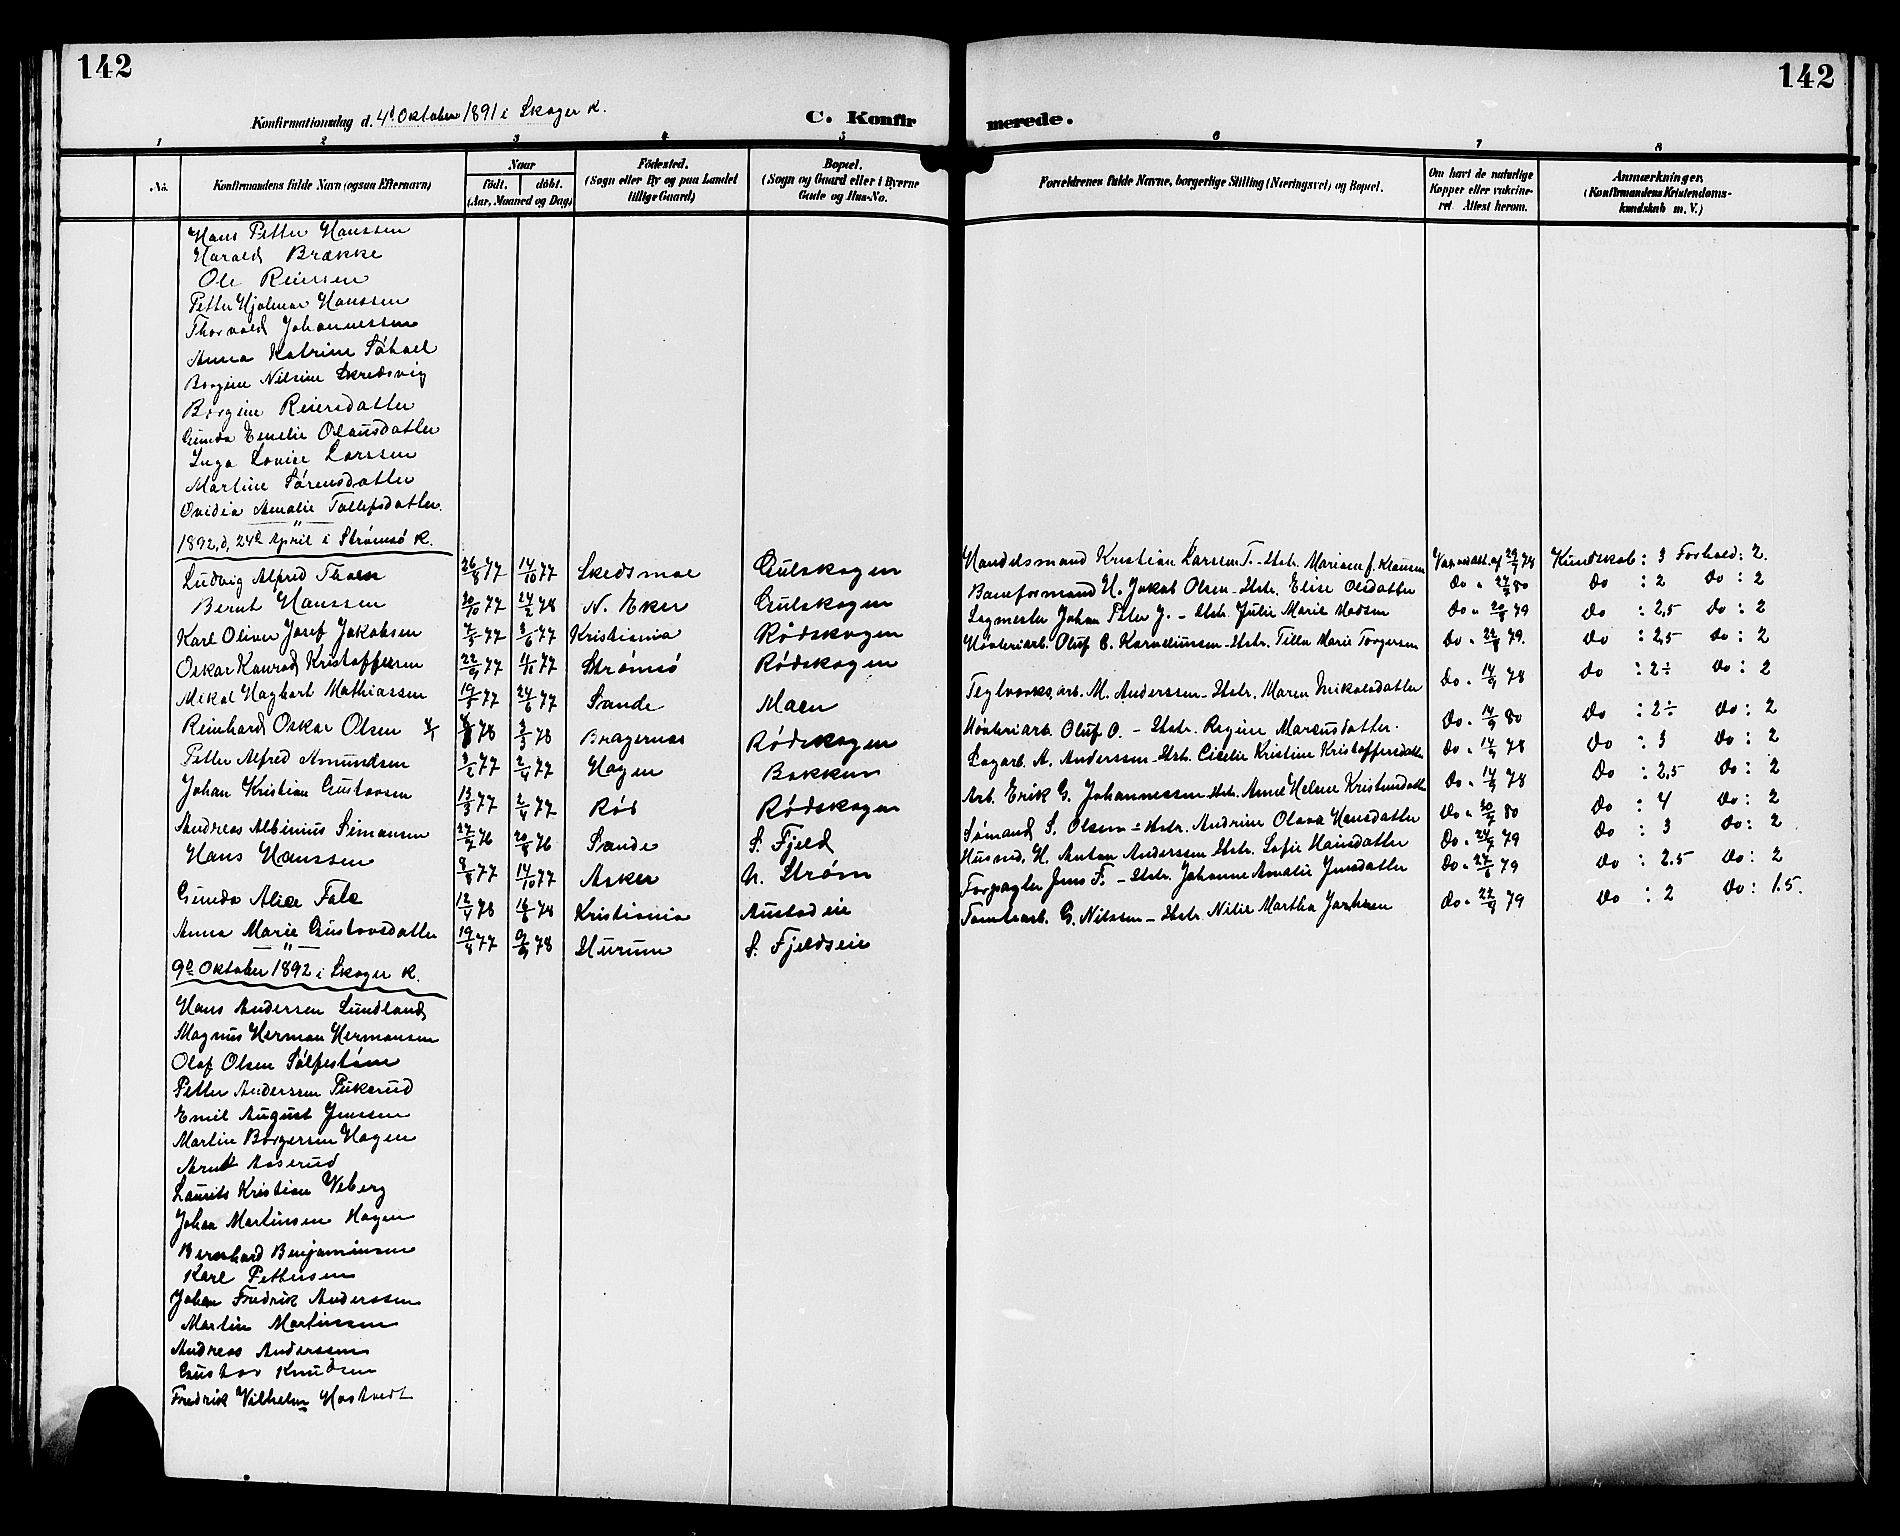 142
142
Konfirmationsdag d. 4d Oktober 1891 i Skoger K.
C. Konfirmerede.
1 2 3 4 5 6 7 8
No.
Konfirmandens fulde Navn (ogsaa Efternavn)
Naar
født. døbt.
(Aar, Maaned og Dag)
Fødested.
(Sogn eller By og paa Landet
tillige Gaard)
Bopæl.
(Sogn og Gaard eller i Byerne
Gade og Hus-No.
Forældrenes fulde Navne, borgerlige Stilling (Næringsvei) og Bopæl.
Om havt de naturlige
Kopper eller vakcine-
ret Attest herom.
Anmærkninger,
(Konfirmandens Kristendoms-
kundskab m. V.)
Hans Petter Hanssen
Harald Brække
Ole Reiersen
Petter Hjalmar Hanssen
Thorvald Johannessen
Anna Katrine Såhael
Borgine Nilsine Skredsvig
Borgine Reiersdatter
Gunda Emelie Olausdatter
Inga Lovise Larssen
Martine Sørensdatter
Ovidia Amalie Tollefsdatter.
1892, d, 24d April i Strømsø K.
Ludvig Alfred Thoen 26/8 77 14/10 77 Skedsmoe Gulskogen Handelsmand Kristian Larsen T. - Hstr. Mariane f. Klausen Vax. 78 Kundskab: 3 Forhold: 2.
Bernt Hanssen 30/10 77 24/2 78 N. Eker Gulskogen Baneformand H. Jakob Olsen - Hstr. Elise Olsdatter Do " 80 Do : 2 Do : 2
Karl Oliver Josef Jakobsen 77 77 Kristiania Rødskogen Sagmester Johan Peter J. - Hstr. Julie Marie Madsen Do " 79 Do : 2,5 Do : 2
Oskar Konrad Kristoffersen 77 77 Strømsø Rødskogen Høvleriarb. Oluf C. Korneliussen - Hstr. Tilla Marie Torgersen Do " 79. Do : 2,5 Do : 2
Mikal Hagbart Mathiassen 77 77 Sande Maen Teglværksarb. M. Anderssen - Hstr. Maren Mikalsdatter Do " 78 Do : 2÷ Do : 2
Reinhard Oskar Olsen 78 78 Bragernes Rødskogen Høvleriarb. Oluf O. - Hstr. Regine Marcusdatter. Do " 80 Do : 2÷ Do : 2
Petter Alfred Amundsen 77 77 Hagen Bakken Sagarb. A. Anderssen - Hstr. Cicelie Kristine Kristoffersdatter Do " 78 Do : 3 Do : 2
Johan Kristian Gustavsen 77 77 Rød Rødskogen Arb. Erik G. Johannessen - Hstr. Anne Helene Kristensdatter Do " 78 Do : 2,5 Do : 2
Andreas Albinius Simonsen 76 76 Sande S. Fjeld Sømand S. Olsen - Hstr. Andrine Olava Hansdatter Do " 80 Do : 4 Do : 2
Hans Hanssen 77 14/10 77 Asker N. Strøm Husmd. H. Anton Anderssen Hstr. Sofie Hansdatter Do " 79 Do : 3 Do : 2
Gunda Alice Fale 78 78 Kristiania Austadeie Forpagter Jens F. - Hstr. Johanne Amalie Jensdatter Do " 79 Do : 2.5 Do : 2
Anna Marie Gustavsdatter 77 78 Hurum S. Fjeldseie Tomtearb. G. Nilssen - Hstr. Nilie Martha Do " 79 Do : 2 Do : 1.5.
9d Oktober 1892 i Skoger K.
Hans Andersen Lundland
Magnus Herman Hermansen
Olaf Olsen Sølfestøen
Petter Anderssen Pukerud
Emil August Jenssen
Martin Borgersen Hagen
Arnt Aaserud
Laurits Kristian Veberg
Johan Martinsen Hagen
Bernhard Benjaminsen
Karl Pettersen
Johan Fredrik Anderssen
Martin Martinssen
Andreas Anderssen
Gustav Knudsen
Fredrik Vilhelm Hostvedt